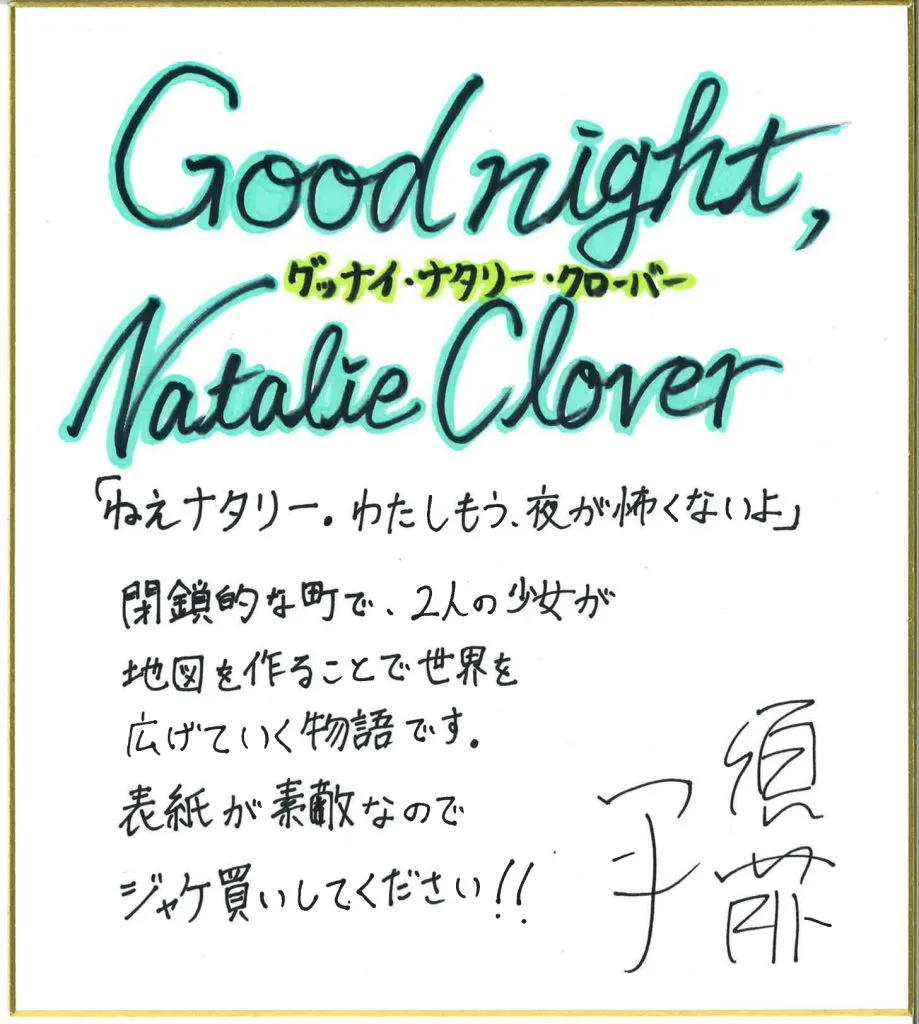 Good night,
グッナイ・ナタリー・クローバー
Natalie Clover
「ねえナタリー。わたしもう、夜が怖くないよ」
閉鎖的な町で、2人の少女が
地図を作ることで世界を
広げていく物語です。
表紙が素敵なので
ジャケ買いしてください!!
須藤